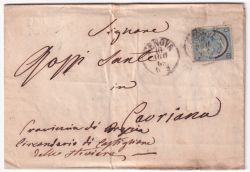 Signore
Goffi Sante
in
Cavriana
Provincia di Brescia
Circondario di Castiglione
delle Stiviere
GENOVA